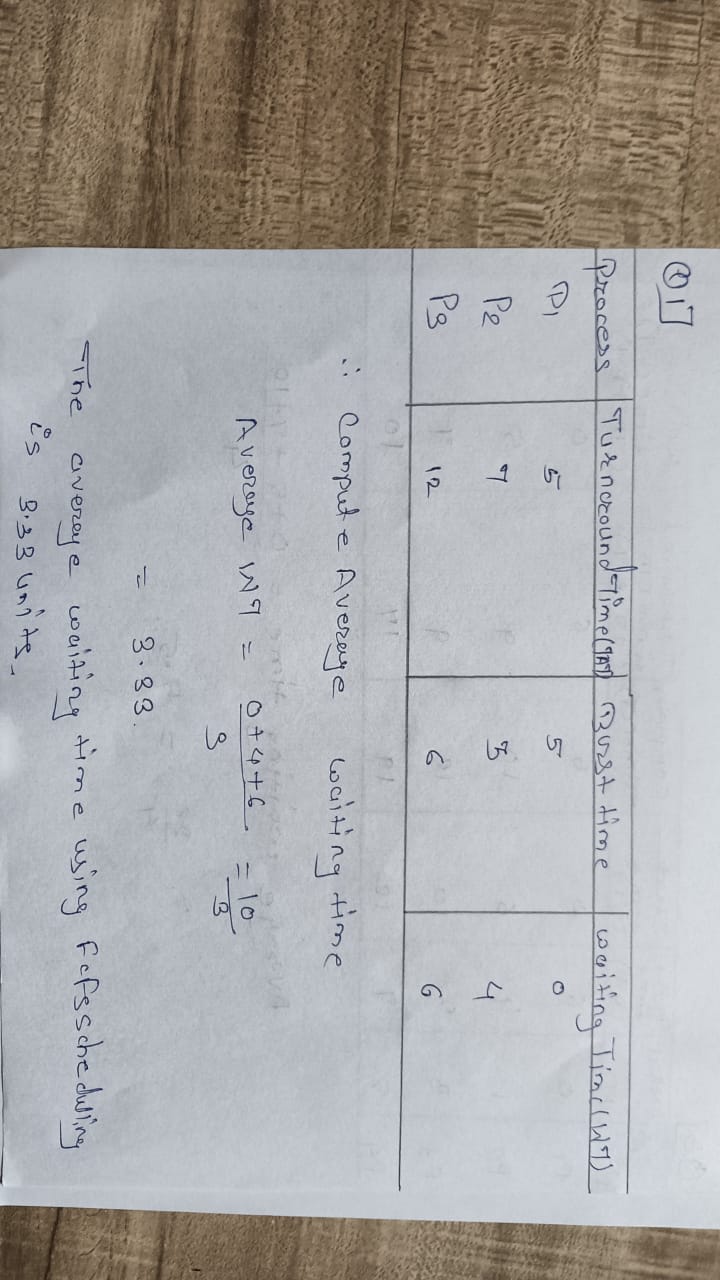 Q.1]
Process | Turnaround Time (TAT) | Burst time | waiting Time (WT)
P1 | 5 | 5 | 0
P2 | 7 | 3 | 4
P3 | 12 | 6 | 6
∴ Compute Average waiting time
Average WT = 0+4+6/3 = 10/3
= 3.33.
The average waiting time using fcfs scheduling
is 3.33 units.